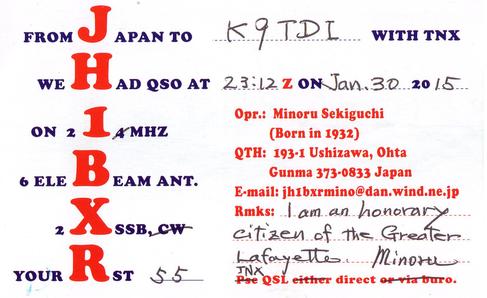 FROM JAPAN TO K9TDI WITH TNX
WE HAD QSO AT 23:12 Z ON Jan. 30 2015
ON 2 1 4 MHZ
6 ELE BEAM ANT.
2 X SSB, CW
YOUR RST 55
Opr.: Minoru Sekiguchi
(Born in 1932)
QTH: 193-1 Ushizawa, Ohta
Gunma 373-0833 Japan
E-mail: jh1bxrmino@dan.wind.ne.jp
Rmks: I am an honorary
citizen of the Greater
Lafayette. Minoru
TNX
Pse QSL either direct or via buro.